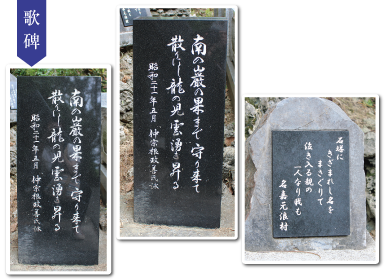 歌碑
南の巌の果まで守り来て
散りし龍の児雲湧き昇る
昭和二十一年五月 仲宗根政善氏詠
南の巌の果まで守り来て
散りし龍の児雲湧き昇る
昭和二十一年五月 仲宗根政善氏詠
石塔に
きざまれし名を
まさぐりて
泣き入る親の
一人なり我も
名嘉元浪村